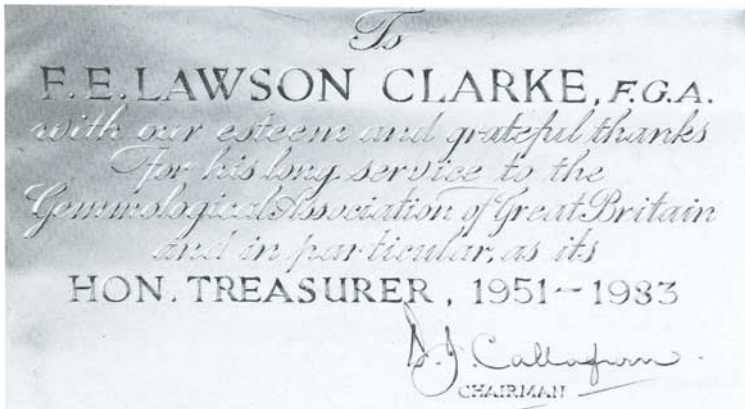 To
F.E. LAWSON CLARKE, F.G.A.
with our esteem and grateful thanks
For his long service to the
Gemmological Association of Great Britain
and in particular, as its
HON. TREASURER, 1951-1983
D.J. Callaghan.
CHAIRMAN